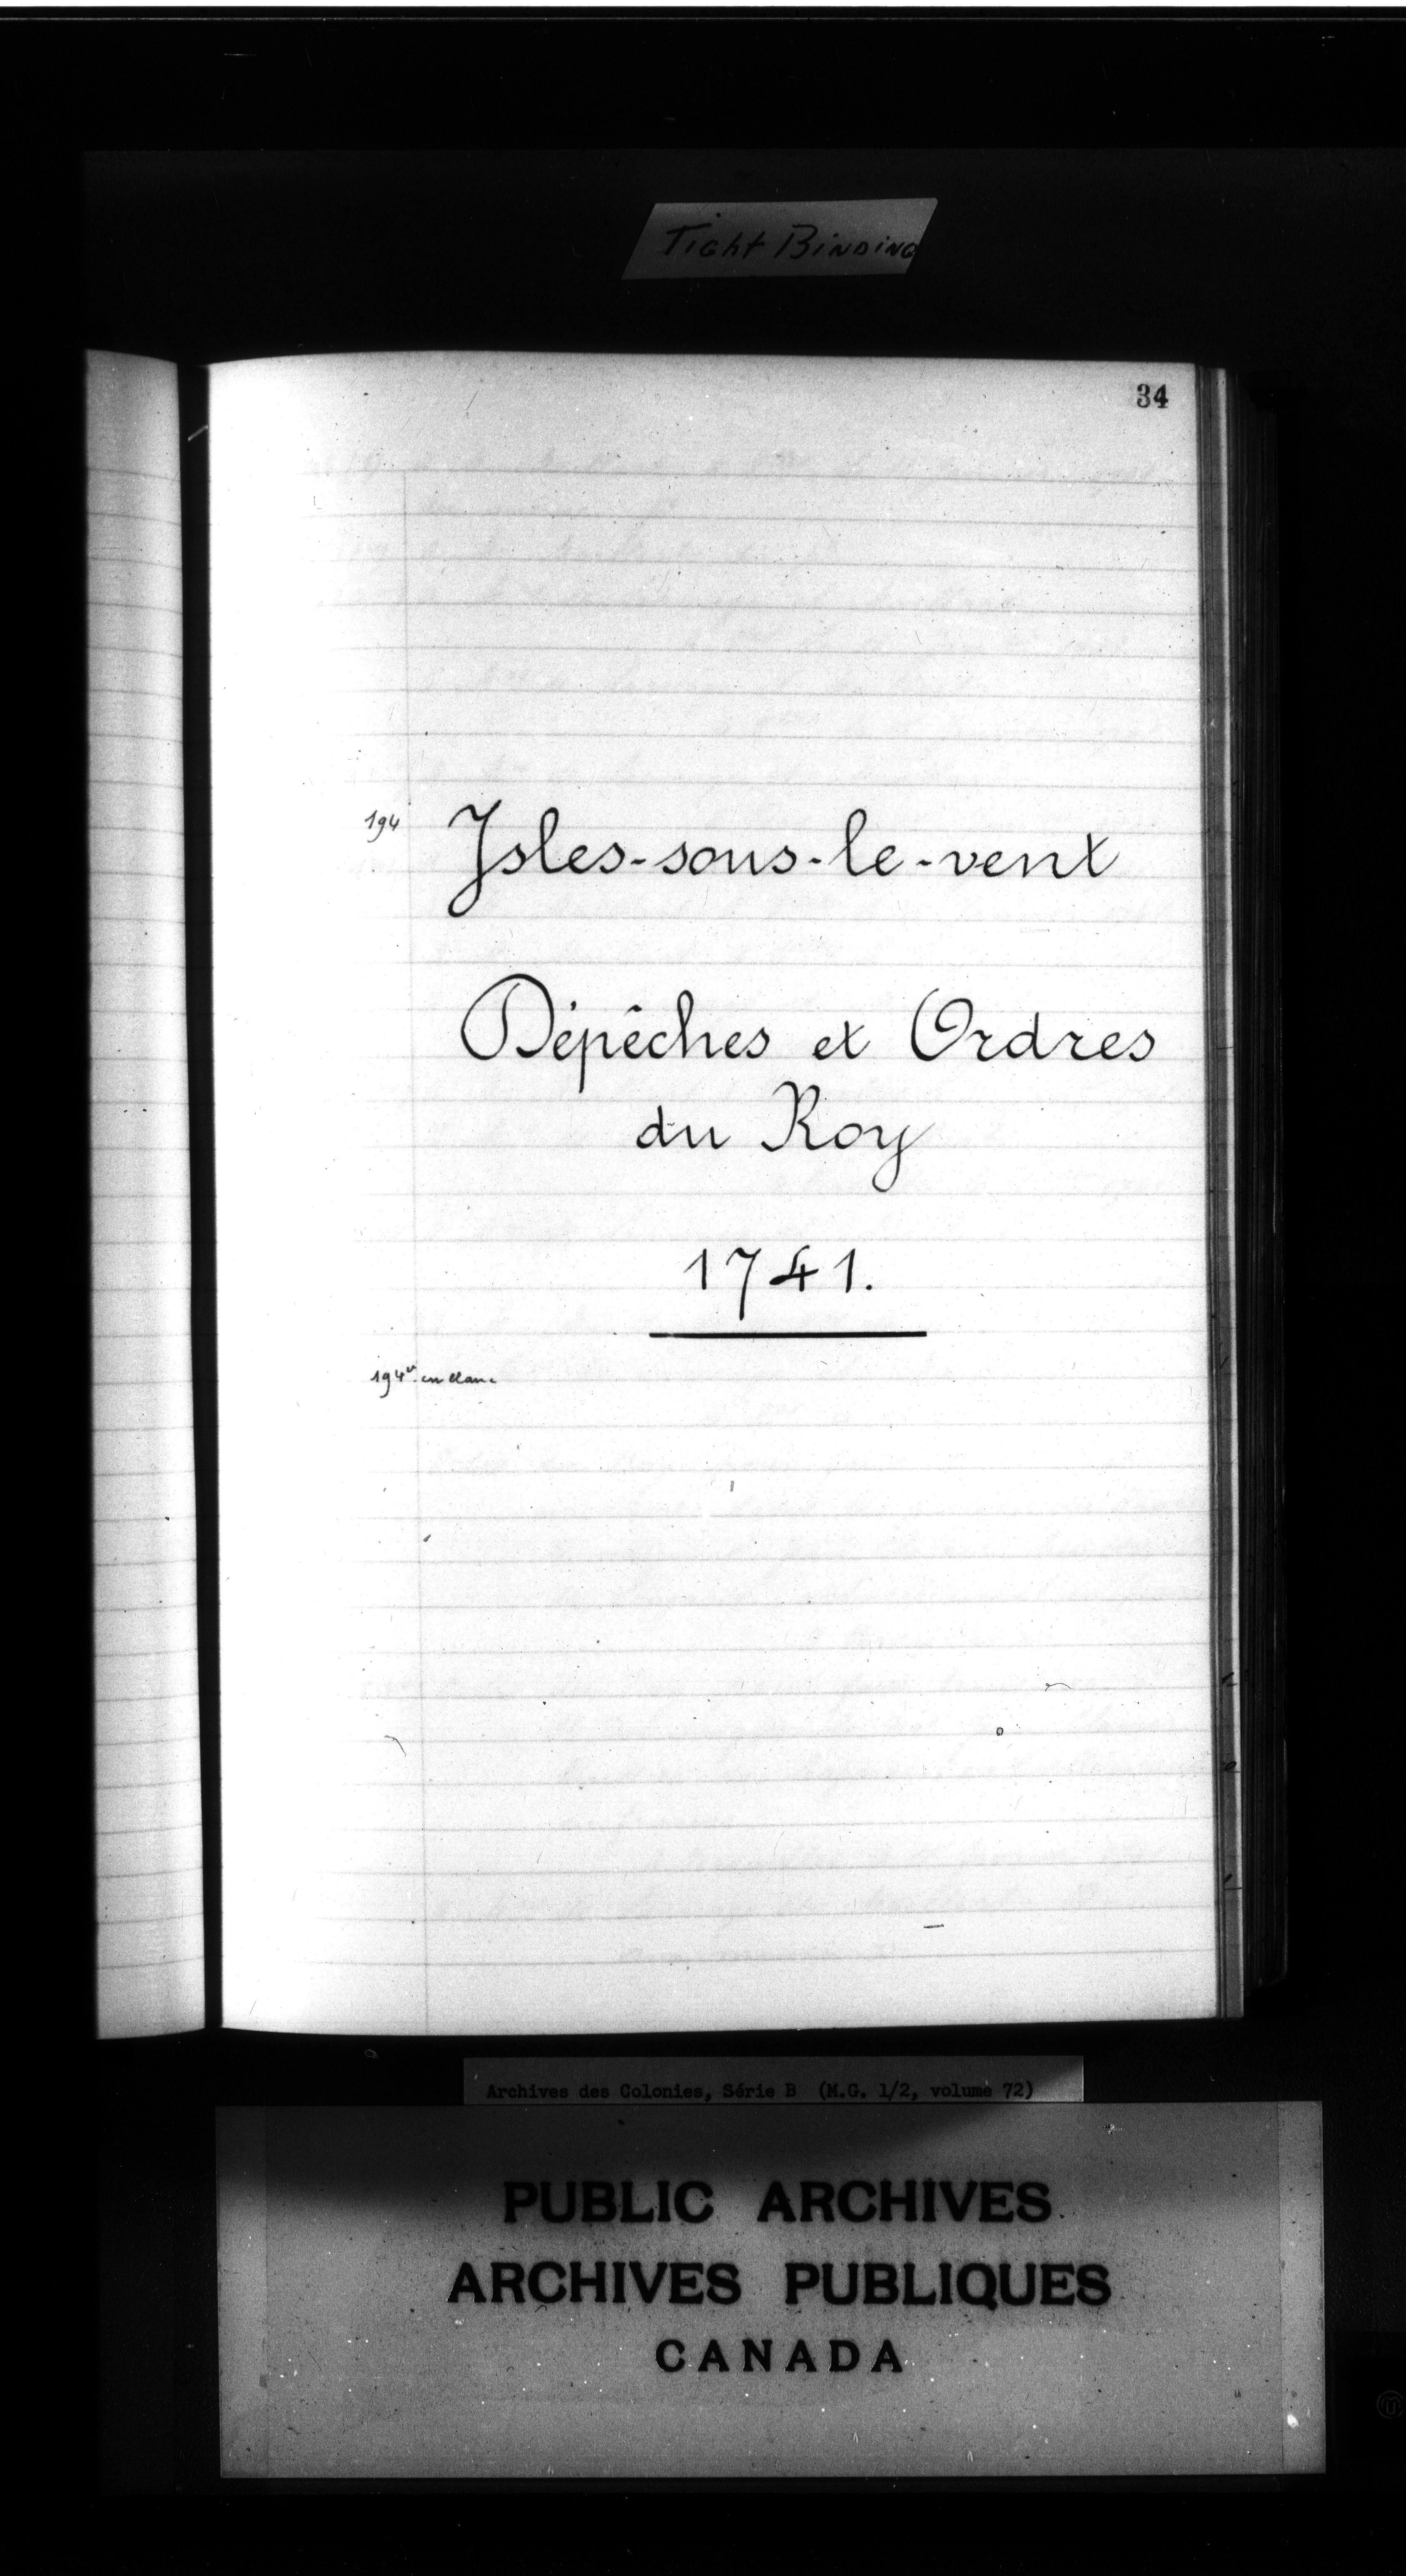 Tight Binding
34
194
Isles-sous-le-vent
Dépêches et Ordres
du Roy
1741.
194v. en blanc
Archives des Colonies, Série B (M.G. 1/2, volume 72)
PUBLIC ARCHIVES
ARCHIVES PUBLIQUES
CANADA